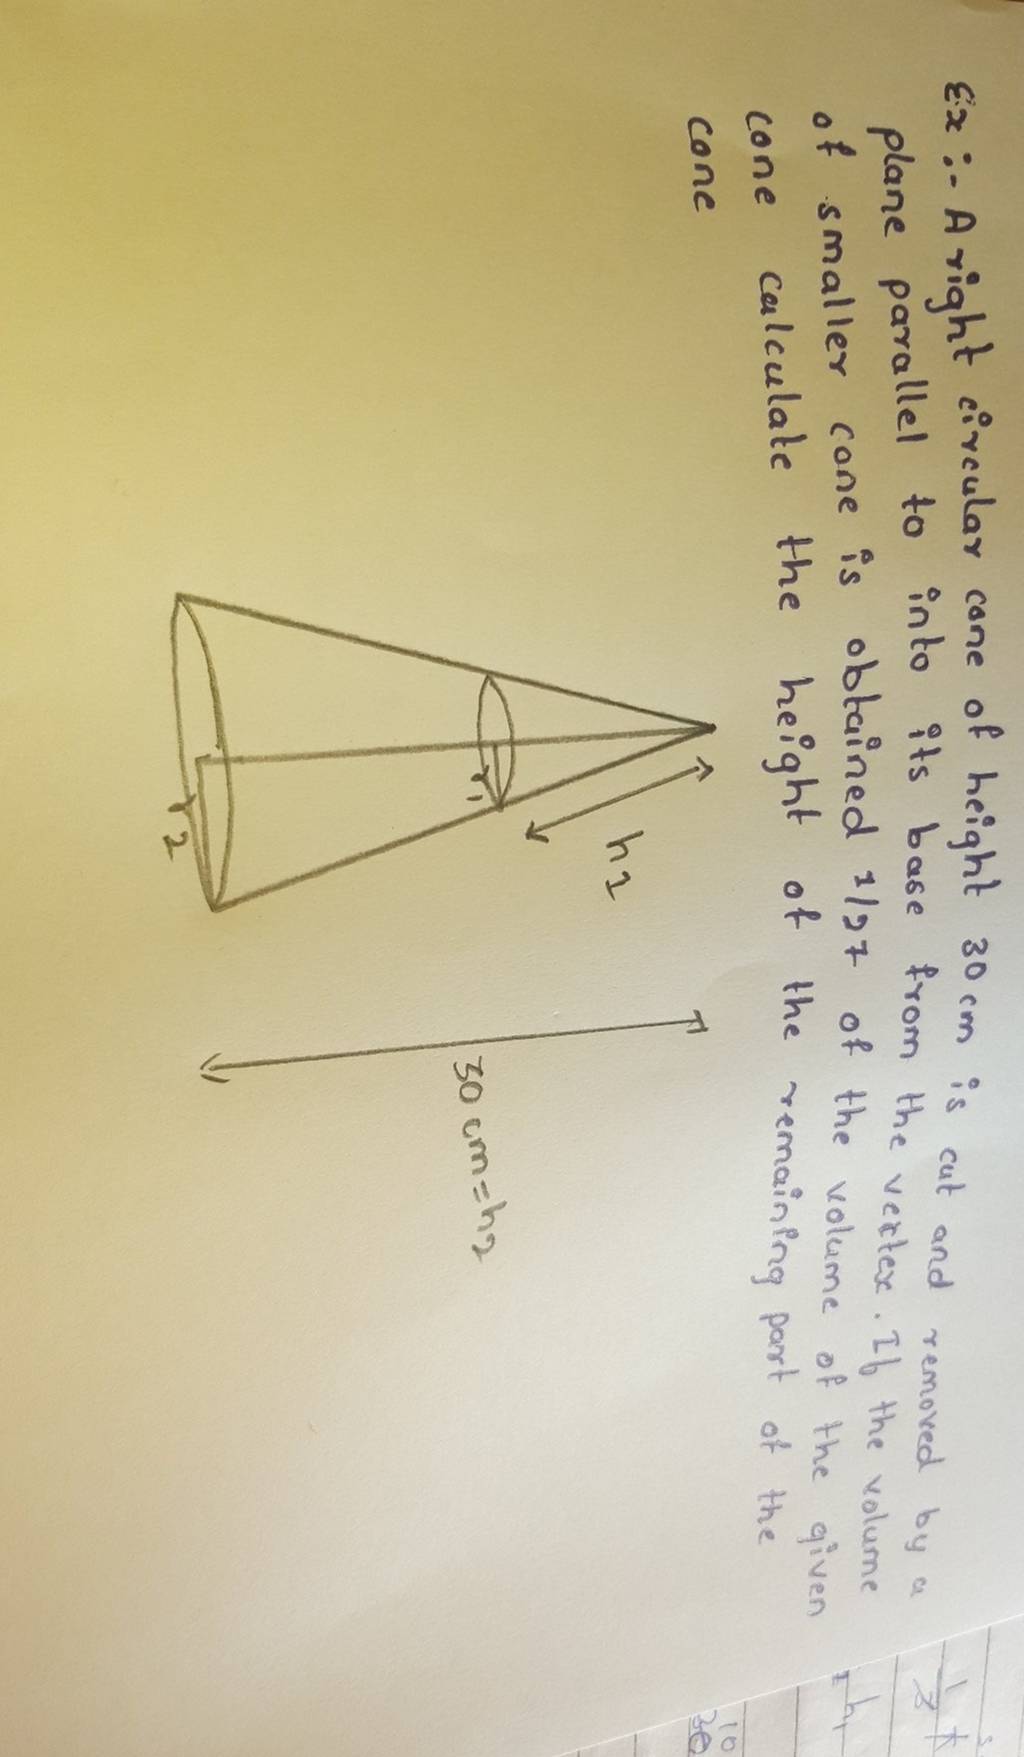 Ex :- A right circular cone of height 30 cm is cut and removed by a
plane parallel to into its base from the vertex. If the volume
of smaller cone is obtained 1/27 of the volume of the given
cone calculate the height of the remaining part of the
cone
h1
r1
r2
30 cm = h2
1
3
h1
10
30